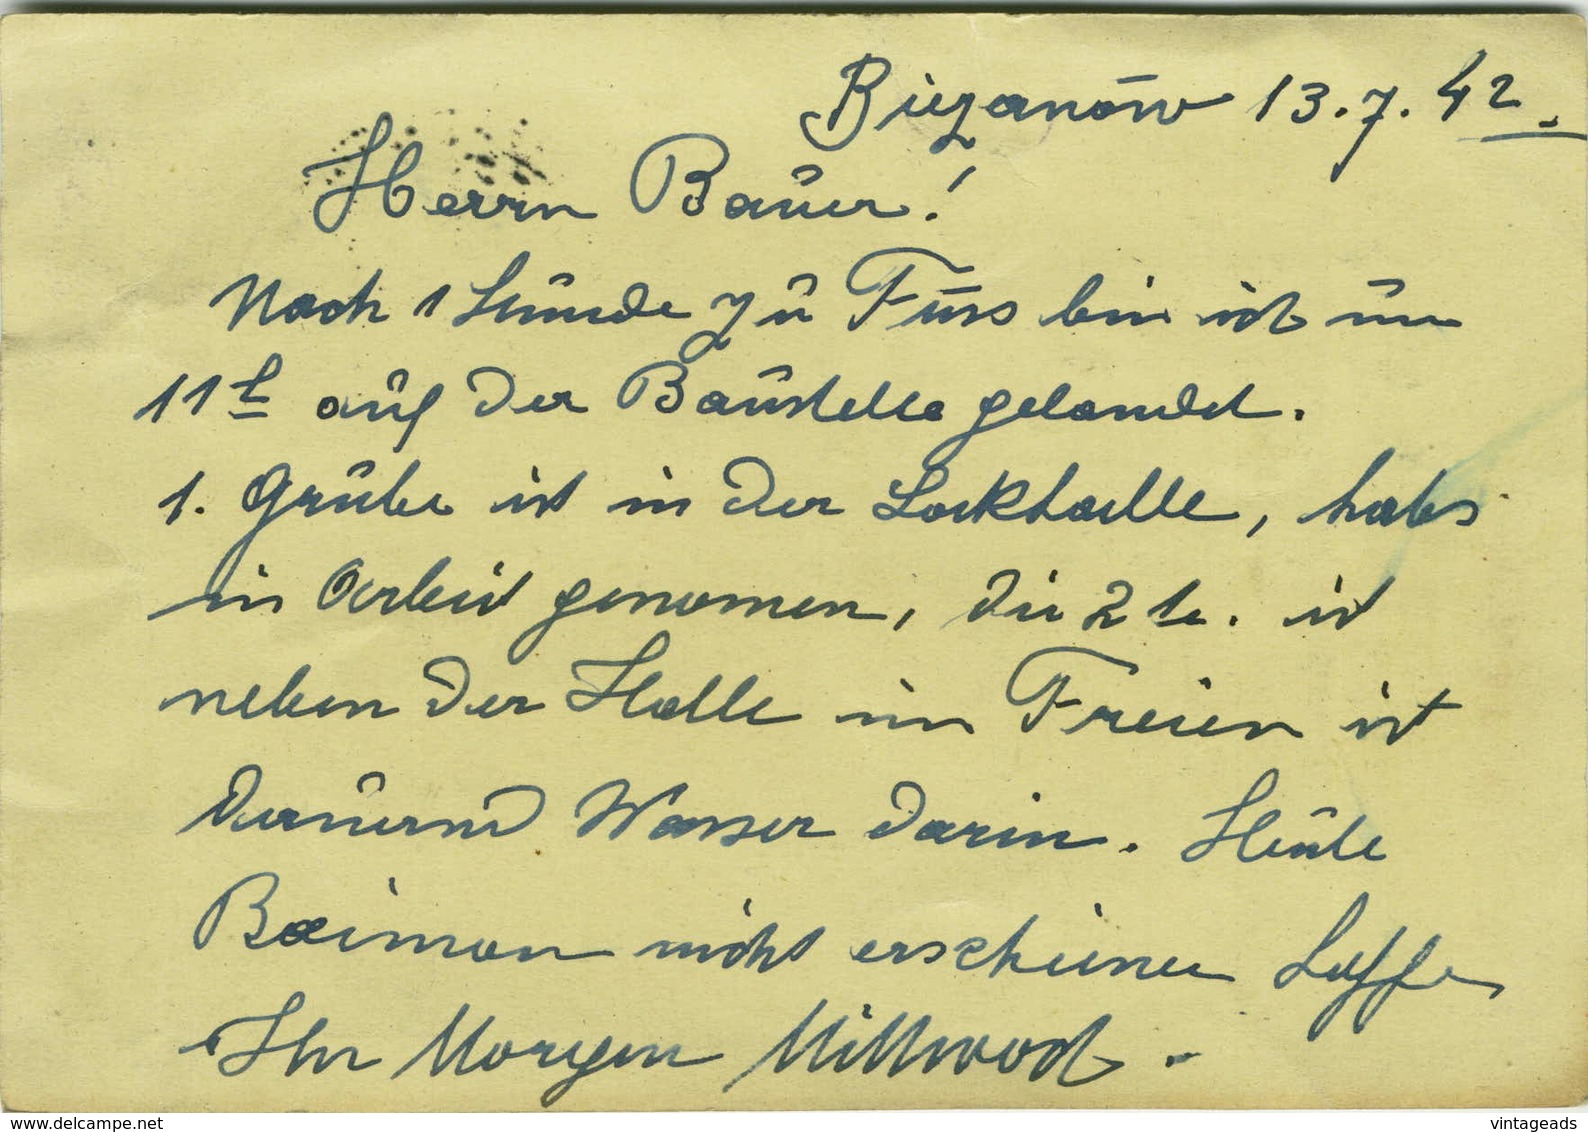 Bieżanów 13.7.42.
Herrn Bauer!
Nach 1 Stunde zu Fuss bin ich um
11h auf der Baustelle gelandet.
1. Grube ist in der Lokhalle, habe
in Arbeit genomen, die 2te. ist
neben der Halle im Freien ist
dauernd Wasser darin. Heute
Baiman nicht erschienen
Ihn Morgen Mittwoch.
www.delcampe.net
vintageads